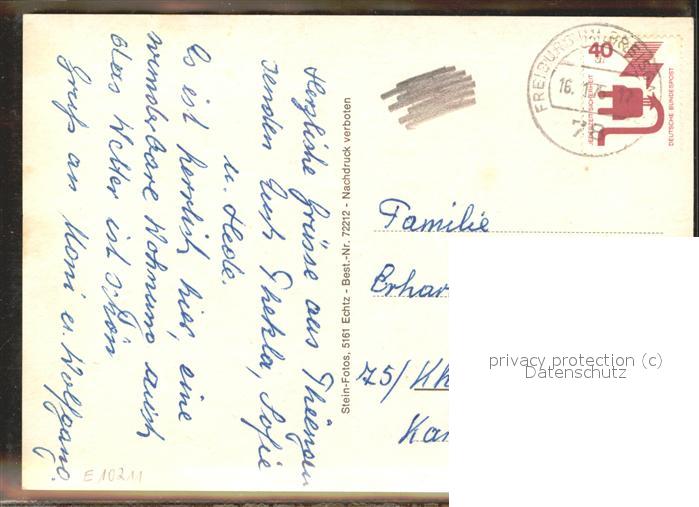 Herzliche Grüsse aus
senden Euch Thekla, Sofie
u. Hede.
Es ist herrlich hier, eine
wunderbare Wohnung auch
das Wetter ist schön
Gruß an Moni u. Wolfgang.
Stein-Fotos, 5161 Echtz - Best.-Nr. 72212 - Nachdruck verboten
40
DEUTSCHE BUNDESPOST
FREIBURG IM BREISGAU
16.
Familie
Erhar
75/ Kh
Kar
privacy protection (c)
Datenschutz
E 10211